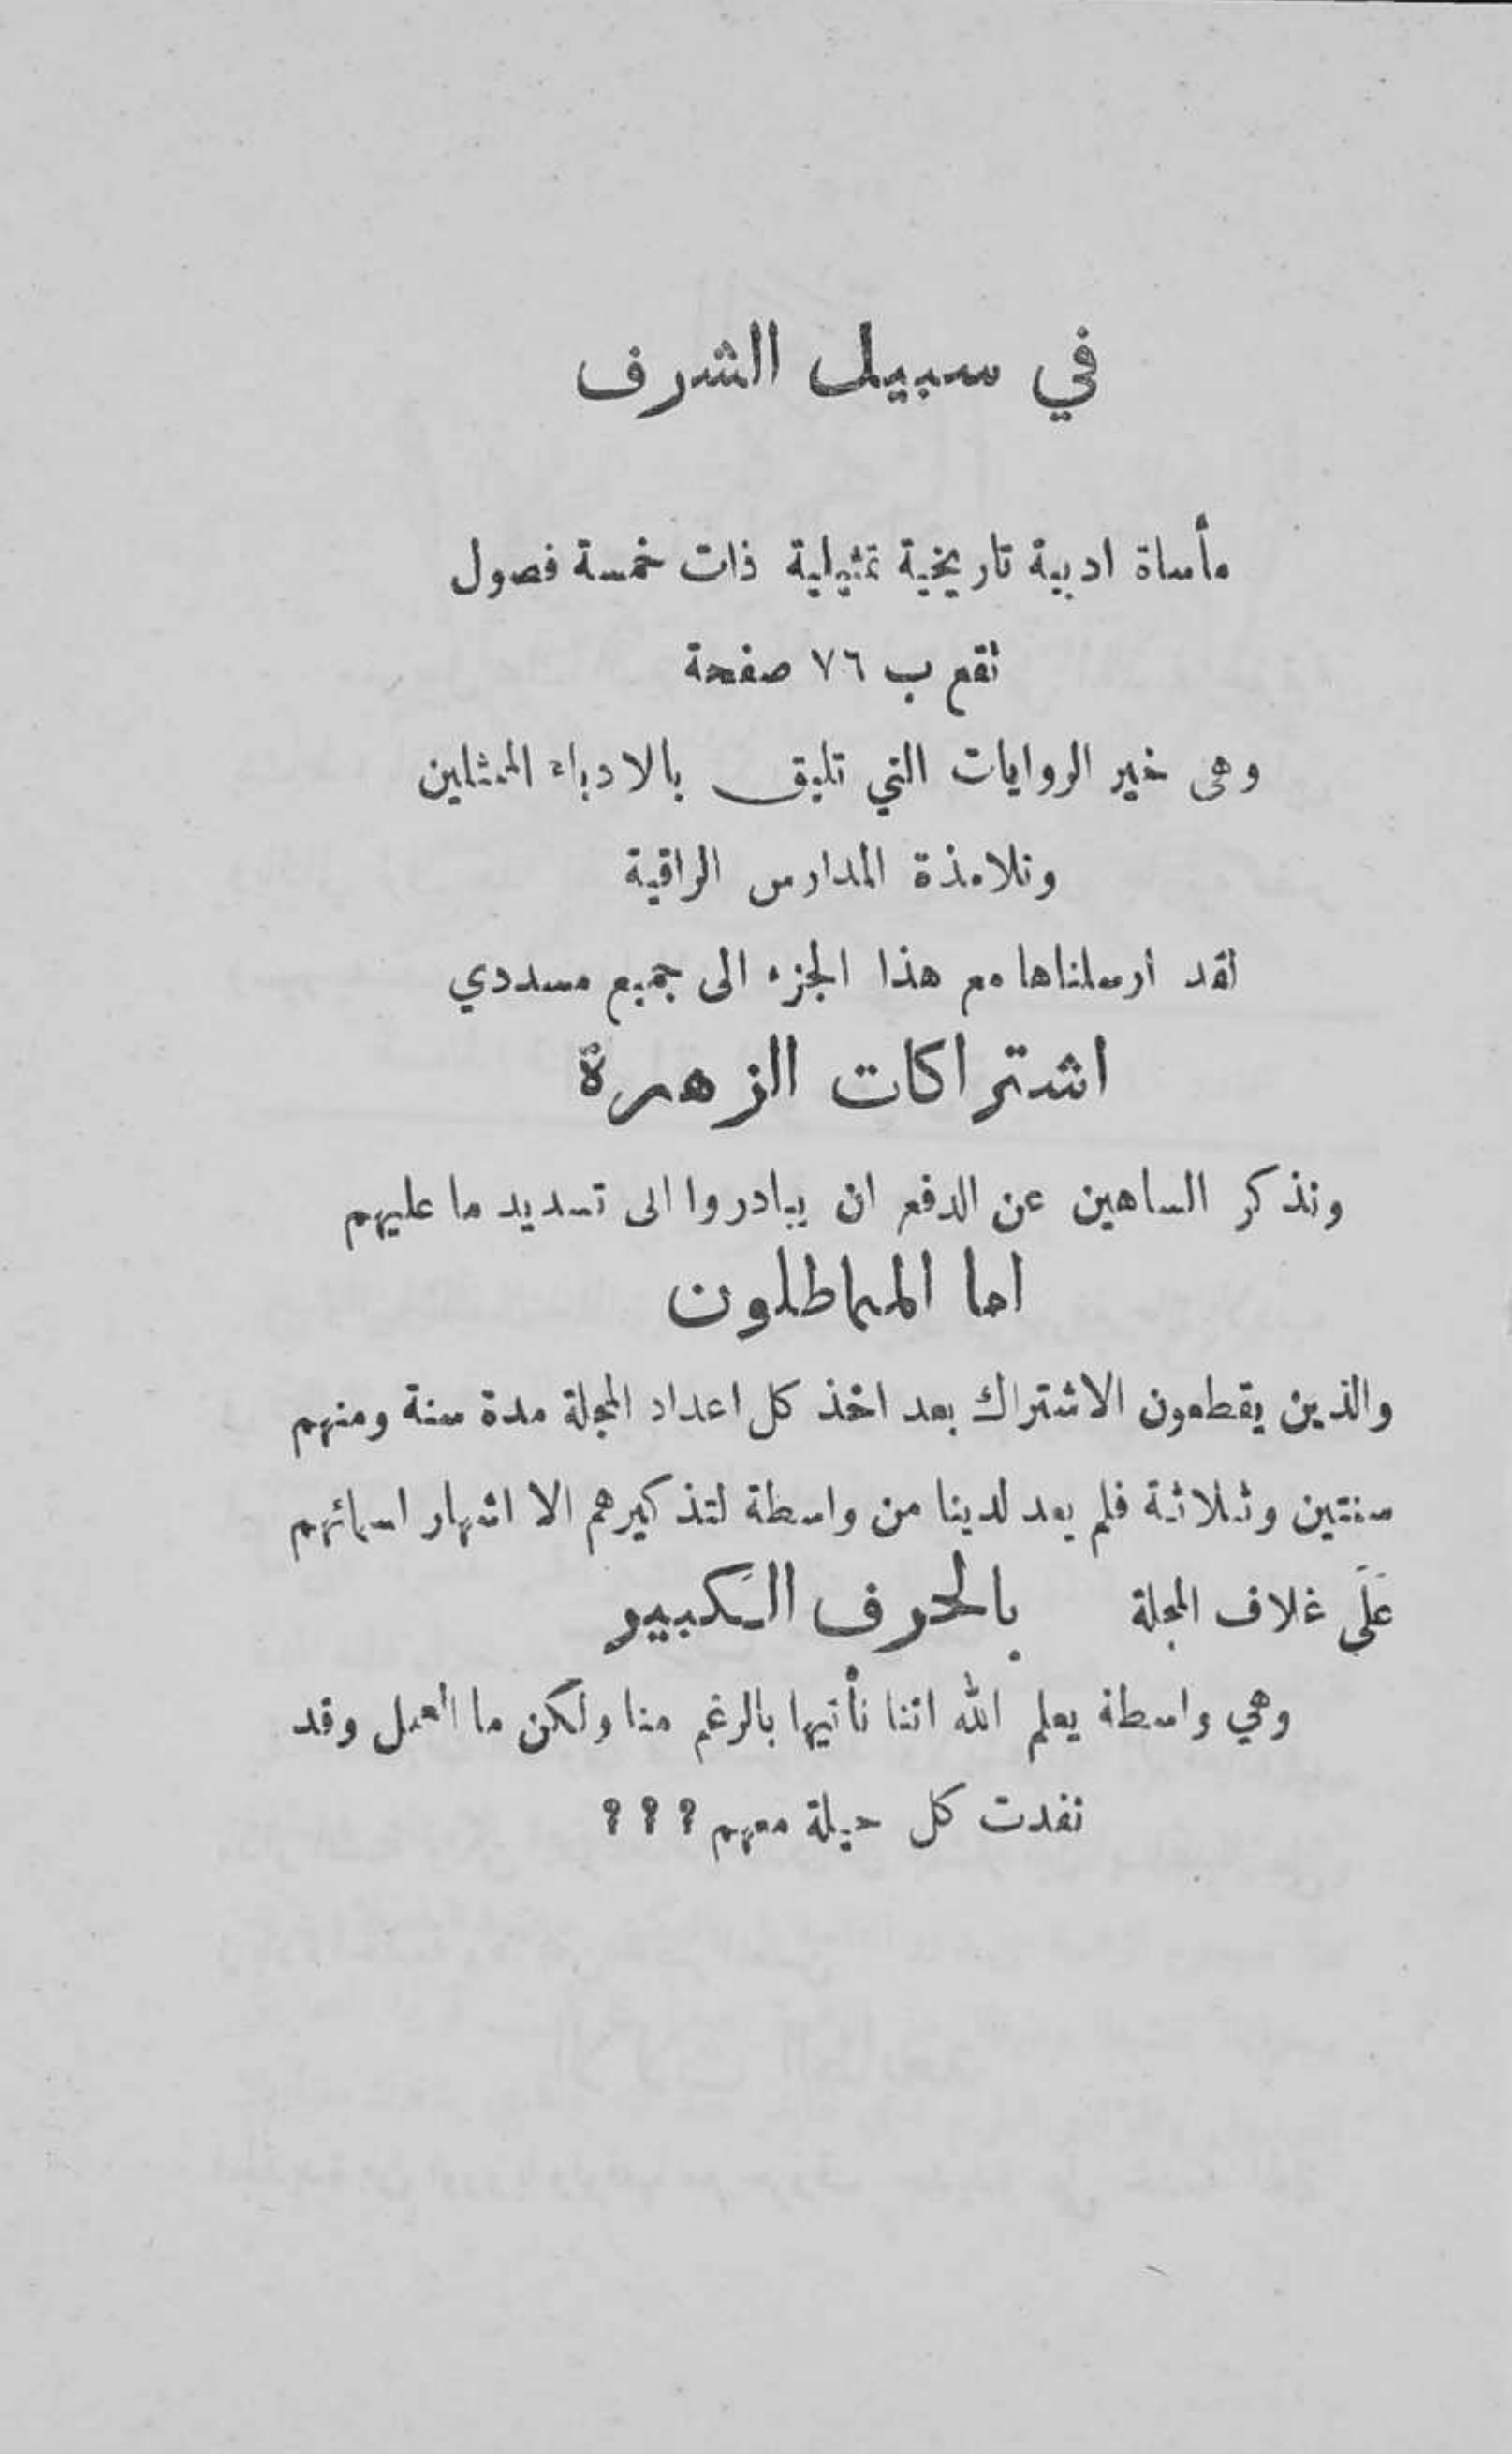 في سبيل الشرف
مأساة ادبية تاريخية تمثيلية ذات خمسة فصول
تقع ب ٧٦ صفحة
وهي خير الروايات التي تليق بالادباء الممثلين
وتلامذة المدارس الراقية
لقد ارسلناها مع هذا الجزء الى جميع مسددي
اشتراكات الزهرة
ونذكر الساهين عن الدفع ان يبادروا الى تسديد ما عليهم
اما المماطلون
والذين يقطعون الاشتراك بعد اخذ كل اعداد المجلة مدة سنة ومنهم
سنتين وثلاثة فلم يعد لدينا من واسطة لتذكيرهم الا اشهار اسمائهم
عَلَى غلاف المجلة بالحرف الكبير
وهي واسطة يعلم الله اننا نأتيها بالرغم منا ولكن ما العمل وقد
نفدت كل حيلة معهم ? ? ?